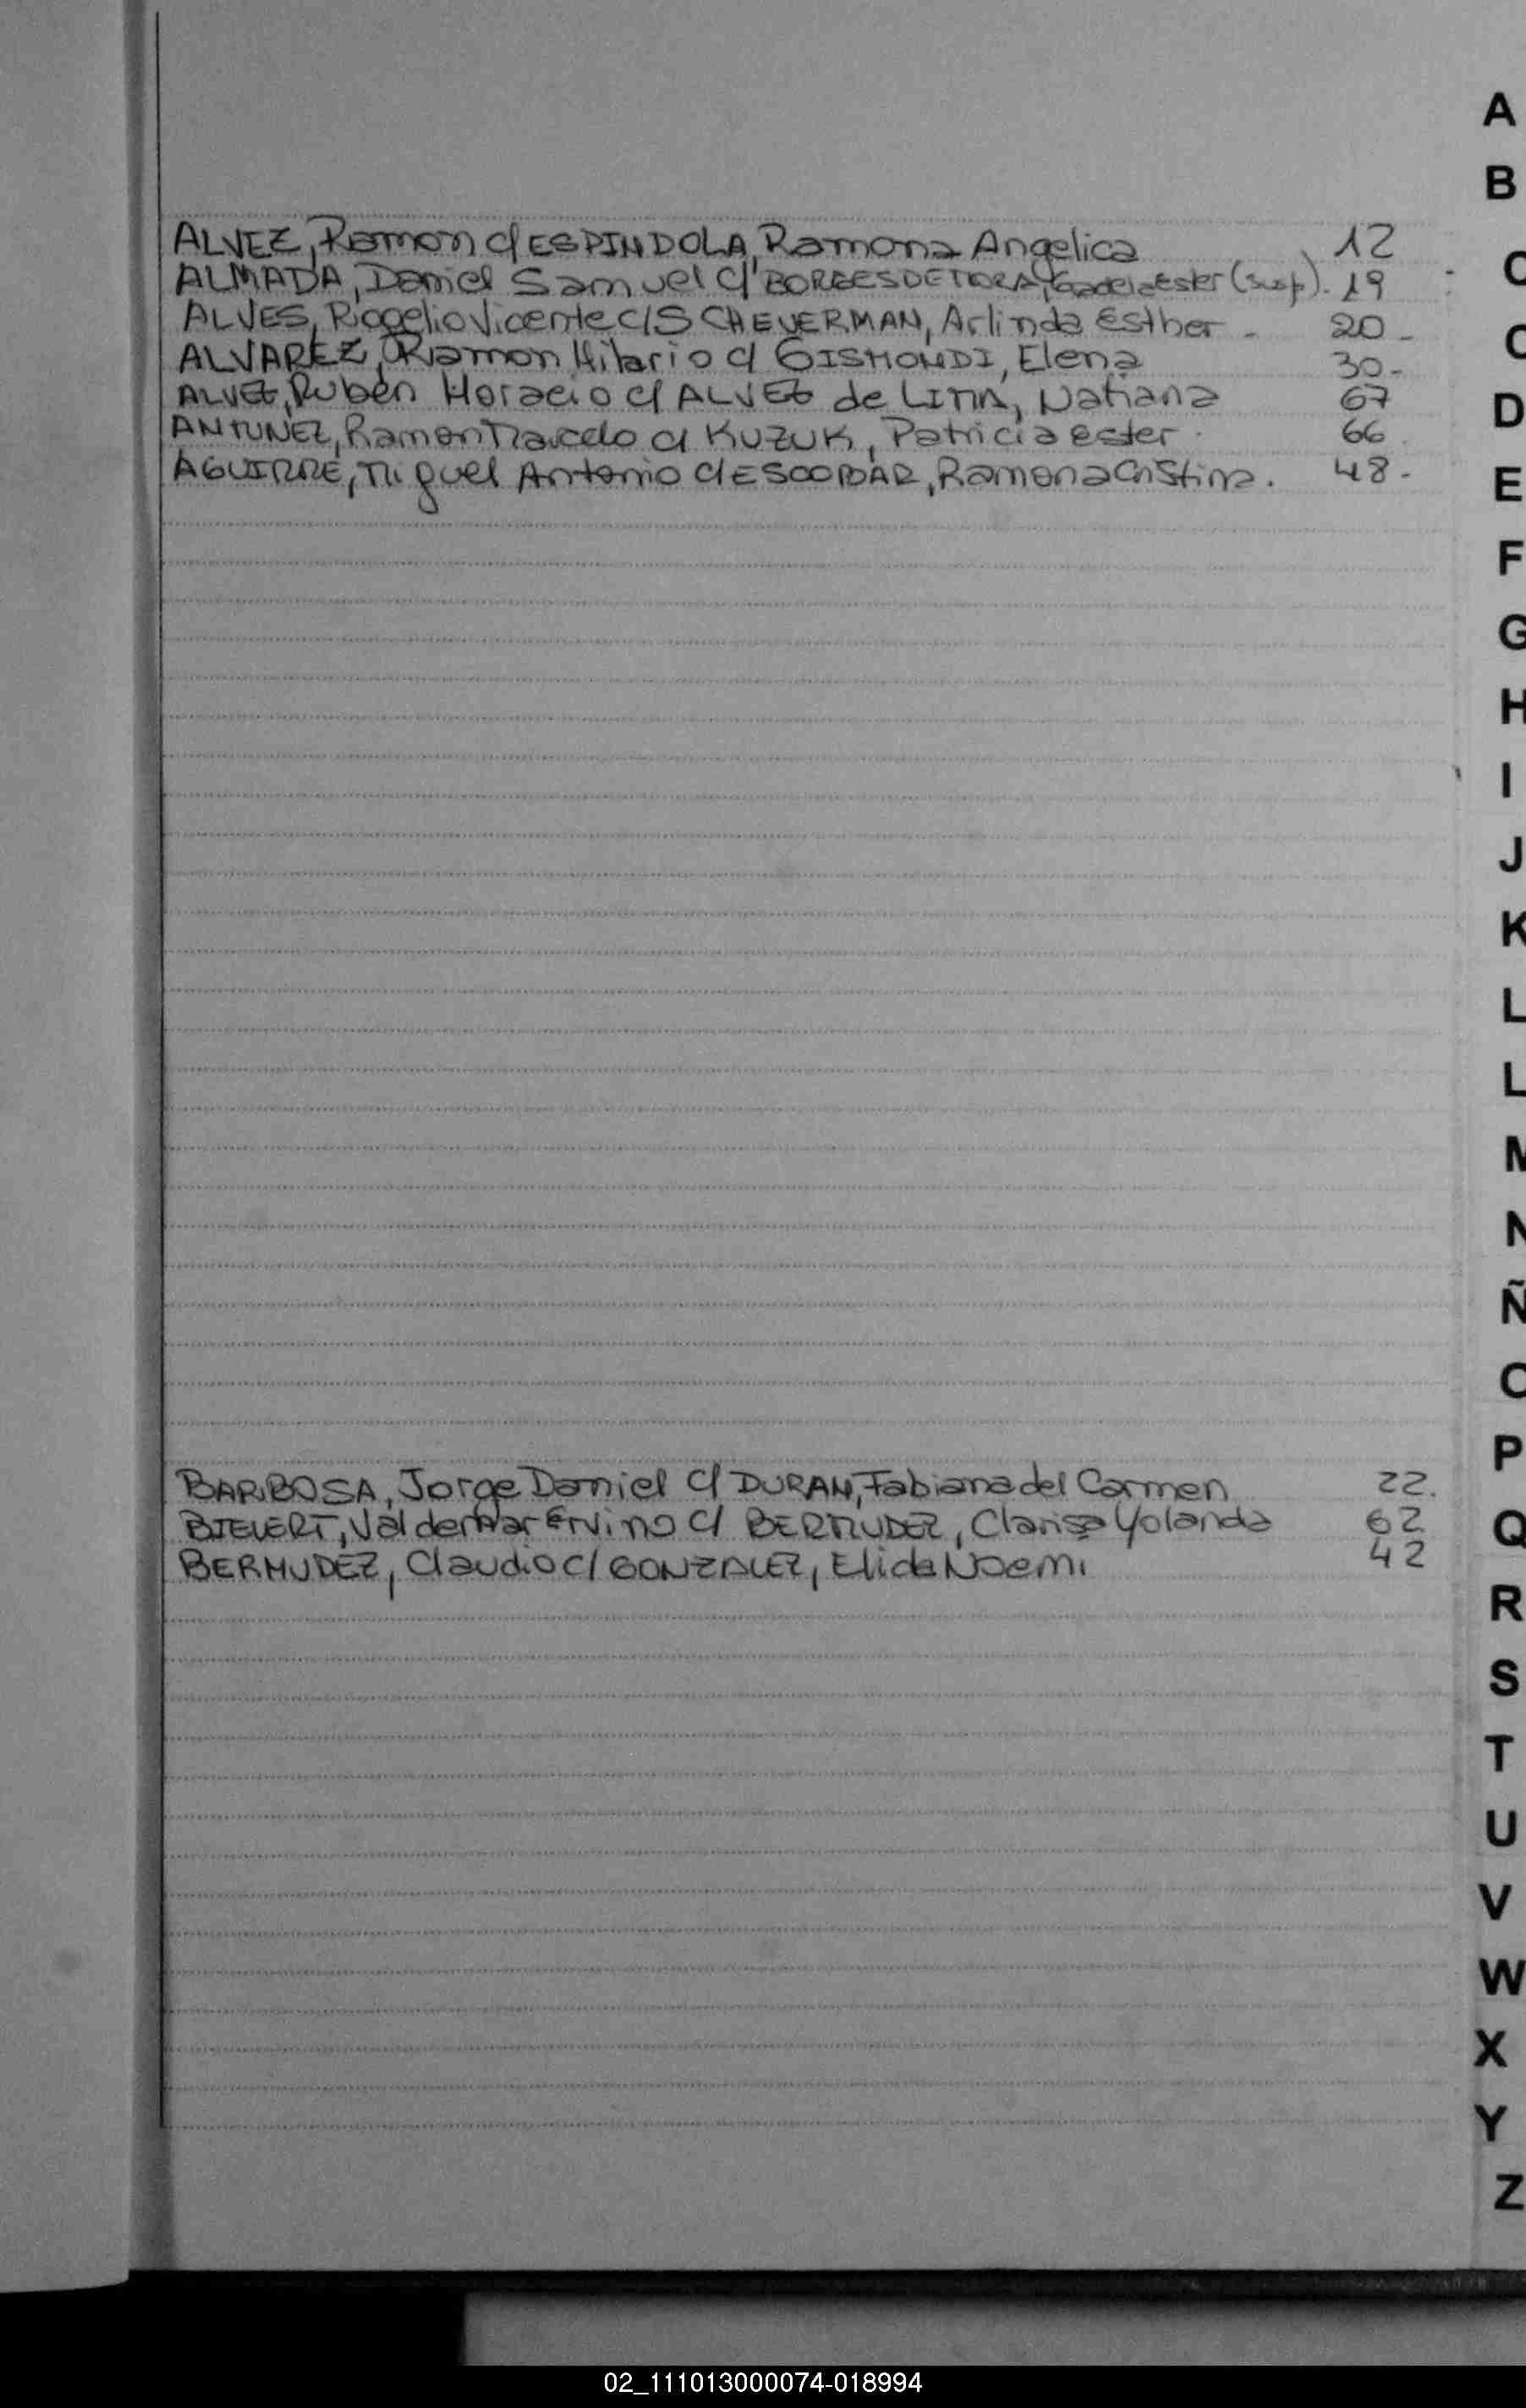 ALVEZ, Ramon c/ ESPINDOLA, Ramona Angelica 12
ALMADA, Daniel Samuel c/ BORGES DE MORA, Ester (susp). 19
ALVES, Rogelio Vicente c/ SCHEVERMAN, Arlinda Esther - 20 -
ALVAREZ, Ramon Hilario c/ GISMONDI, Elena 30 -
ALVEZ, Rubén Horacio c/ ALVEZ de LIMA, Natiana 67
ANTUNEZ, Ramon Marcelo c/ KUZUK, Patricia Ester. 66
AGUIRRE, Miguel Antonio c/ ESCOBAR, Ramona Cristina. 48 -
BARBOSA, Jorge Daniel c/ DURAN, Fabiana del Carmen 22.
BIEVERT, Valdermar Ervino c/ BERMUDEZ, Clarisa Yolanda 62
BERMUDEZ, Claudio c/ GONZALEZ, Elida Noemi 42
A
B
C
C
D
E
F
G
H
I
J
K
L
L
M
N
Ñ
O
P
Q
R
S
T
U
V
W
X
Y
Z
02_111013000074-018994